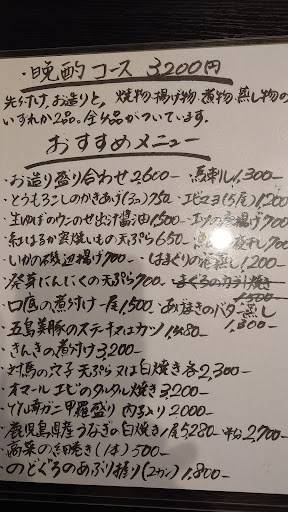 ・晩酌コース 3,200円
先付け、お造りと、焼物・揚げ物・煮物・蒸し物の
いずれか2品。全4品がついています。
おすすめメニュー
・お造り盛り合わせ 2,600― ・馬刺し 1,300―
・とうもろこしのかきあげ(3コ) 750 ・エビマヨ(5尾) 1,200
・生ゆばのウニのせ出汁醤油 1,500― 700
・紅はるか窯焼いもの天ぷら 650― 700
・いかの磯辺揚げ 700― ・はまぐりの酒蒸し 1,200
・発芽にんにくの天ぷら 700― ・まぐろのカマ焼き 1,500
・口魚の煮付け一尾 1,500 ・あさまきのバター蒸し 1,300―
・五島美豚のステーキ又はカツ 1,480―
・きんきの煮付け 3,200―
・対馬の穴子 天ぷら 又は白焼き 各2,300―
・オマールエビのタルタル焼き 3,200―
ガニ甲羅盛り 内子入り 2000―
・鹿児島県産うなぎの白焼き 1尾 5,280― 半分 2,700―
・高菜の細巻き(1本) 500―
・のどぐろのあぶり握り(2カン) 1,800―